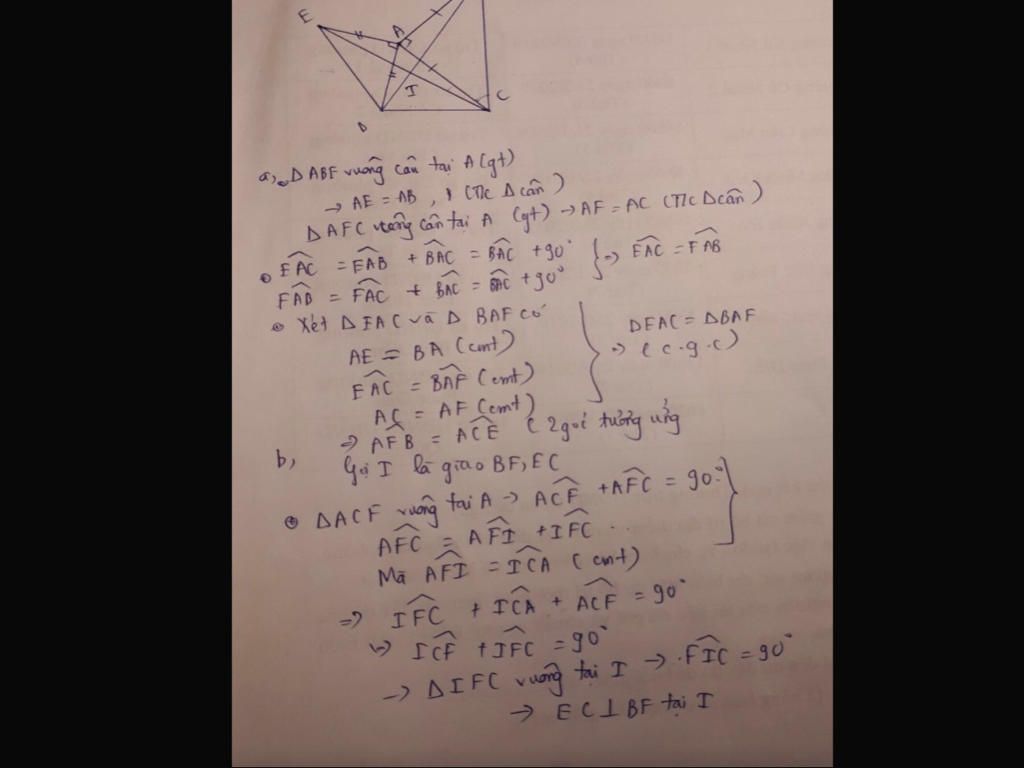 E
A
I
C
B
a, ΔABF vuông cân tại A (gt)
→ AE = AB, (T/c Δ cân)
ΔAFC vuông cân tại A (gt) → AF = AC (T/c Δ cân)
EAC = EAB + BAC = BAC + 90° } => EAC = FAB
FAB = FAC + BAC = BAC + 90°
Xét ΔEAC và Δ BAF có
AE = BA (cmt)
ΔEAC = ΔBAF
=> (c.g.c)
EAC = BAF (cmt)
AC = AF (cmt)
=> AFB = ACE (2 góc tương ứng
b, Gọi I là giao BF, EC
ΔACF vuông tại A → ACF + AFC = 90°
AFC = AFI + IFC
Mà AFI = ICA (cmt)
=> IFC + ICA + ACF = 90°
ICF + IFC = 90°
→ ΔIFC vuông tại I → FIC = 90°
→ EC ⊥ BF tại I